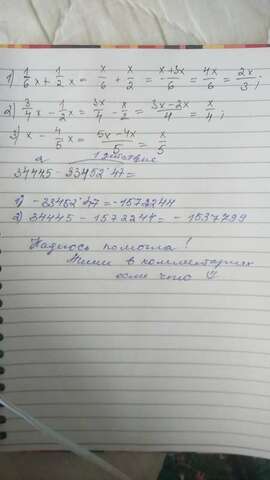 1) 1/6 x + 1/2 x = x/6 + x/2 = x+3x/6 = 4x/6 = 2x/3 ;
2) 3/4 x - 1/2 x = 3x/4 - x/2 = 3x-2x/4 = x/4 ;
3) x - 4/5 x = 5x-4x/5 = x/5
2. 1 действие
34445-33452*47=
1) -33452*47=-1572244
2) 34445-1572244=-1537799
Надеюсь помогла!
Пиши в комментариях
если что